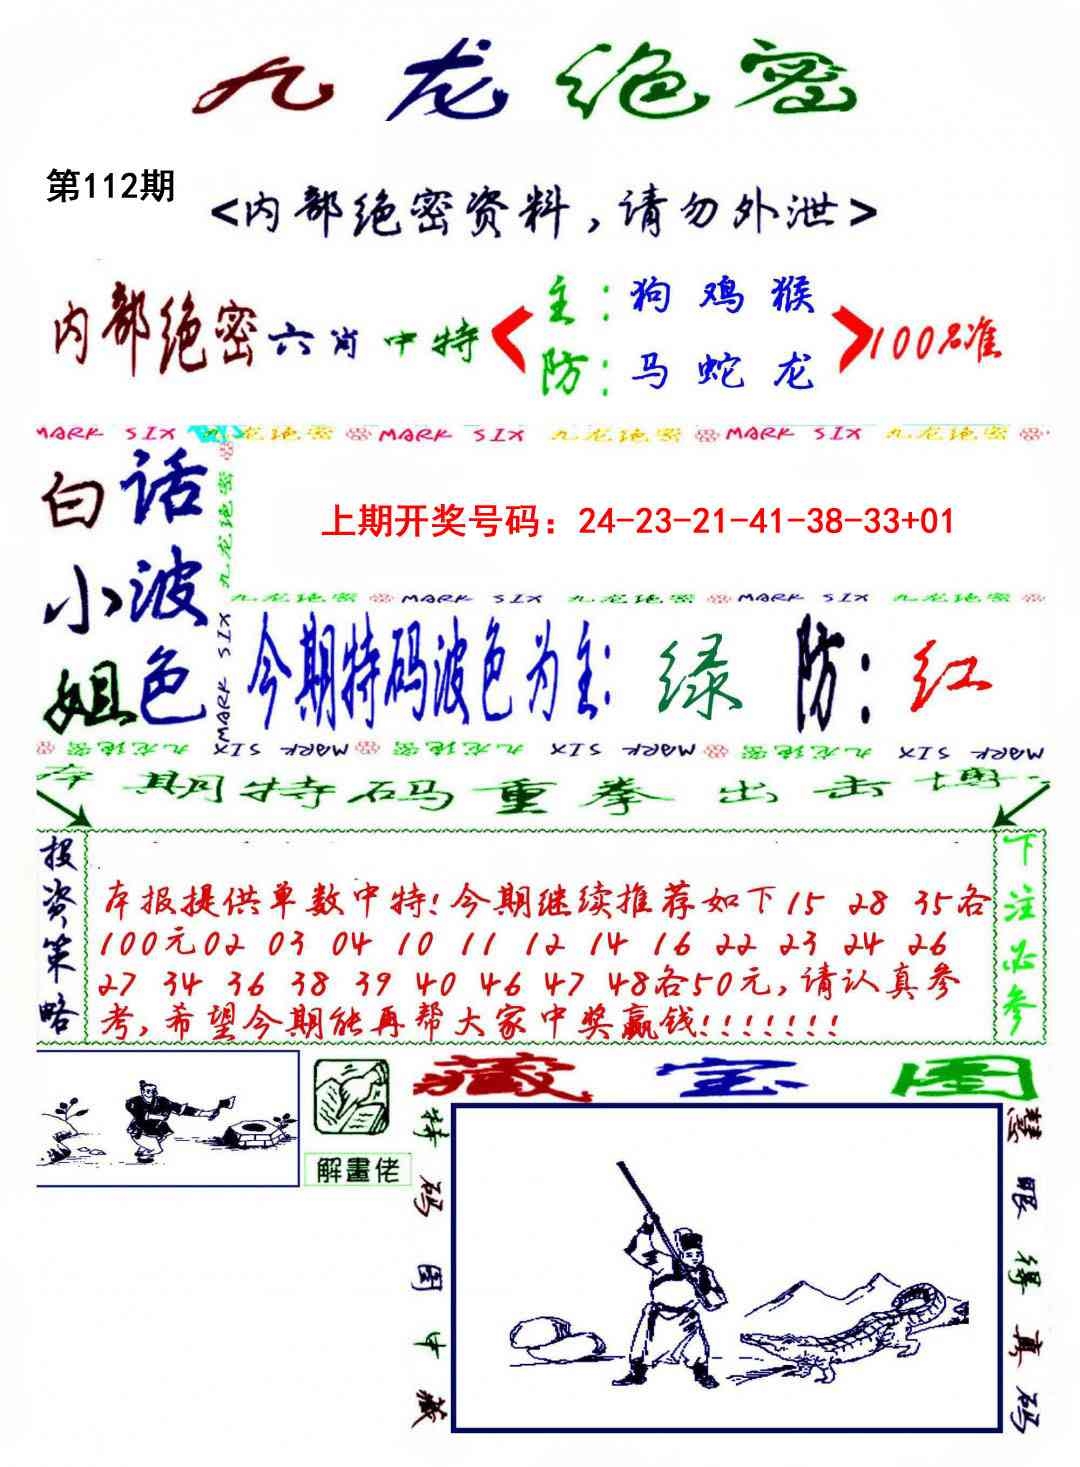 九龙绝密
第112期
<内部绝密资料,请勿外泄>
内部绝密六肖中特
主:狗 鸡 猴
防:马 蛇 龙
100%准
MARK SIX 九龙绝密 MARK SIX 九龙绝密 MARK SIX 九龙绝密
白话
小波
姐色
九龙绝密
MARK SIX
上期开奖号码：24-23-21-41-38-33+01
九龙绝密 MARK SIX 九龙绝密 MARK SIX 九龙绝密
今期特码波色为主:绿 防:红
九龙绝密 MARK SIX 九龙绝密 MARK SIX 九龙绝密 MARK SIX
本期特码重拳出击博
投资策略
本报提供单数中特!今期继续推荐如下15 28 35各
100元02 03 04 10 11 12 14 16 22 23 24 26
27 34 36 38 39 40 46 47 48各50元,请认真参
考,希望今期能再帮大家中奖赢钱!!!!!!!
下注必参
解畫佬
藏宝图
特码图中藏
慧眼得真码